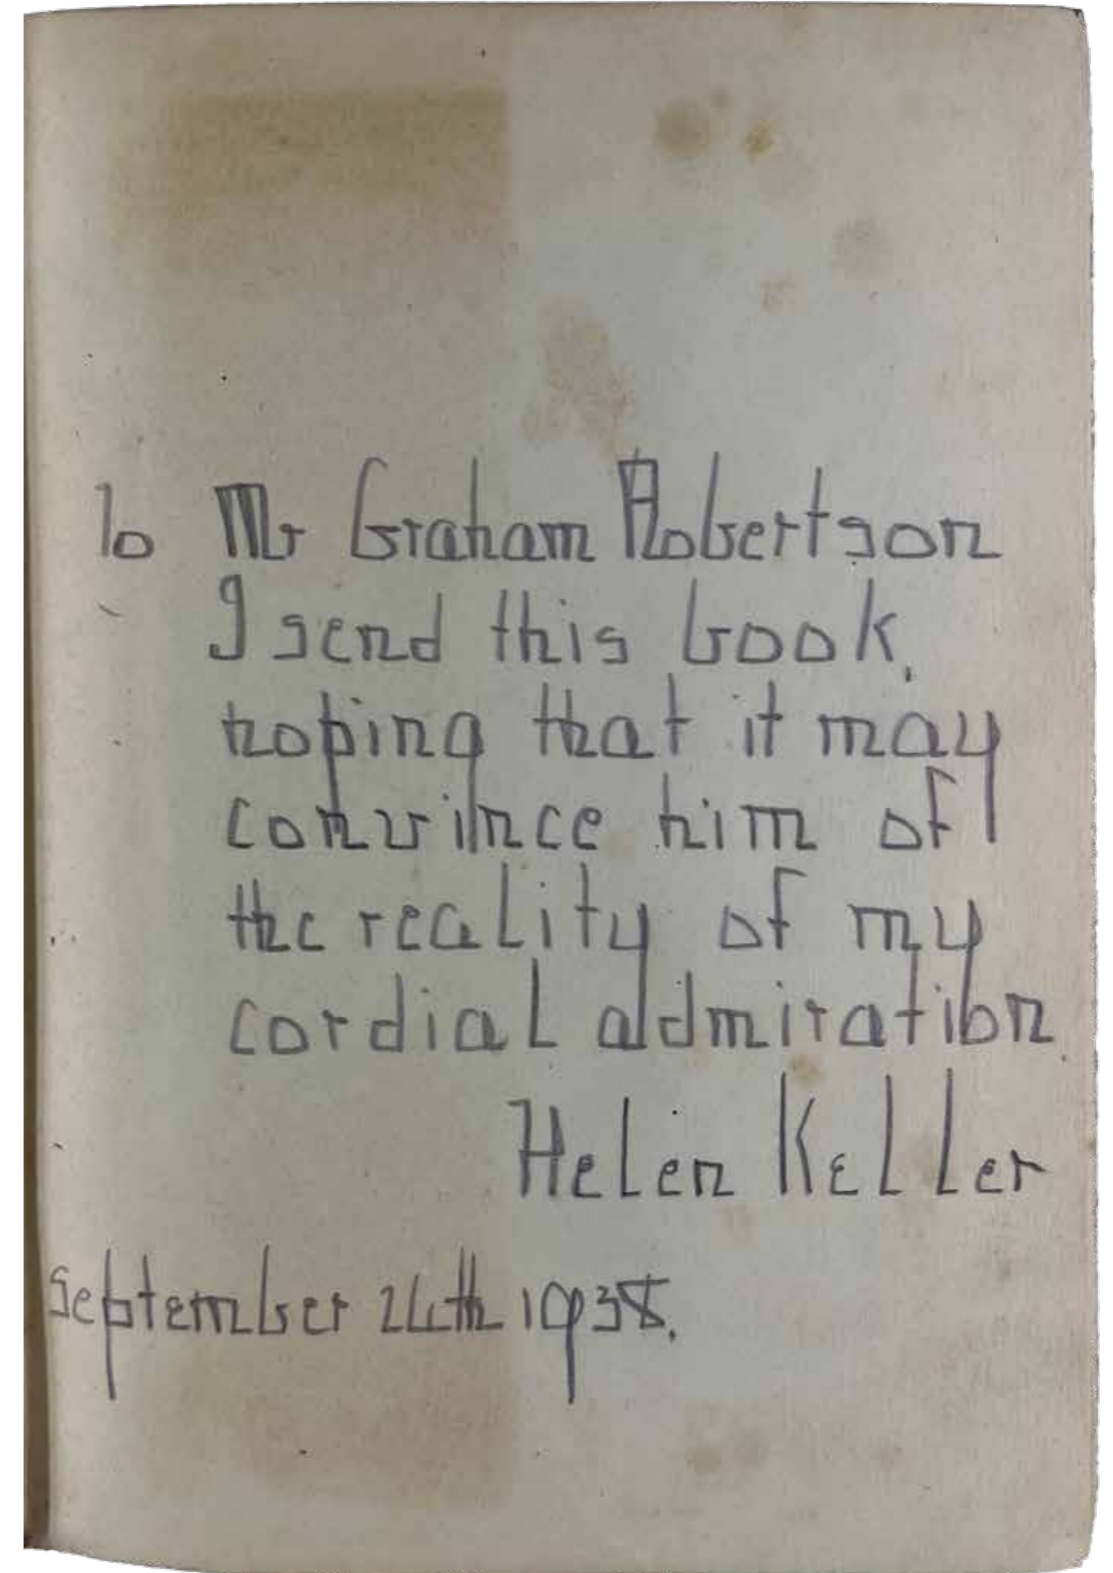 To Mr Graham Robertson
I send this book,
hoping that it may
convince him of
the reality of my
cordial admiration.
Helen Keller
September 26th 1938.